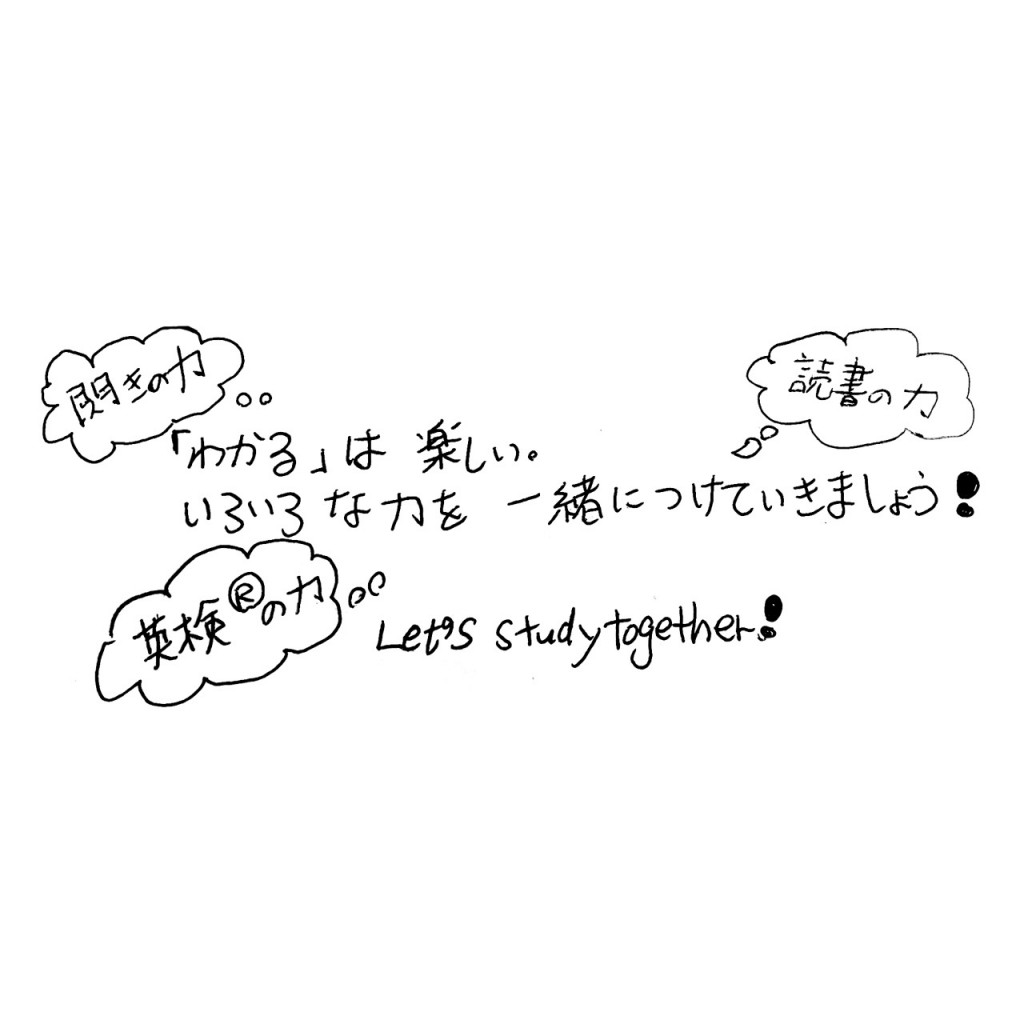 閃きの力
読書の力
「わかる」は 楽しい。
いろいろな力を 一緒につけていきましょう!
英検®の力
Let's study together!